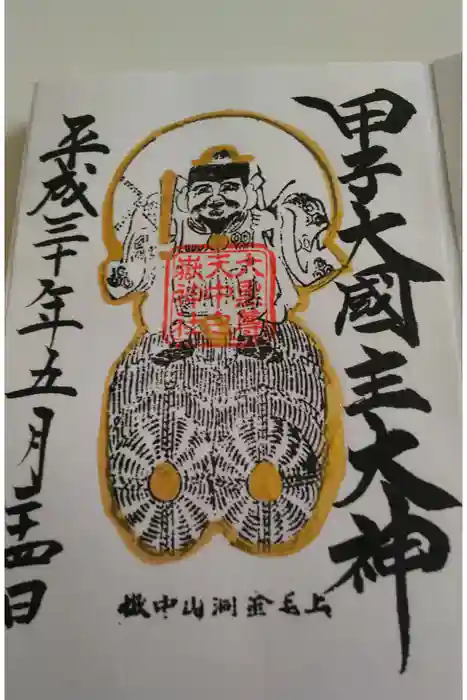 甲子大國主大神
大黒尊
天中
嶽神社
上毛金洞山中嶽
平成三十年五月二十四日